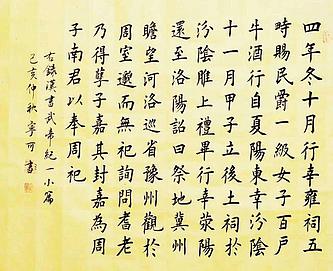 四年冬十月行幸雍祠五
時賜民爵一級女子百戶
牛酒行自夏陽東幸汾陰
十一月甲子立後土祠於
汾陰脽上禮畢行幸滎陽
還至洛陽詔曰祭地冀州
瞻望河洛巡省豫州觀於
周室邈而無祀詢問耆老
乃得孽子嘉其封嘉為周
子南君以奉周祀
右錄漢書武帝紀一小篇
己亥仲秋寧可書